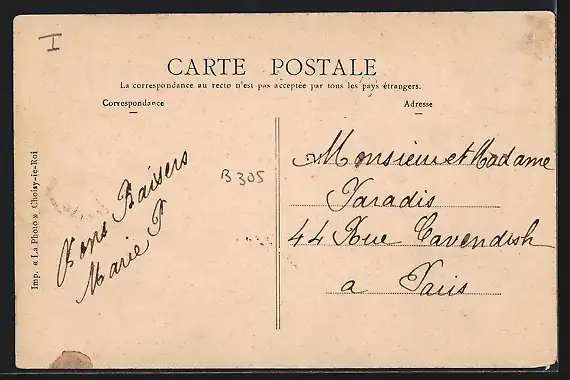 I
CARTE POSTALE
La correspondance au recto n'est pas acceptée par tous les pays étrangers.
Correspondance
Adresse
Imp. « La Photo » Choisy-le-Roi
Bons Baisers
Marie P
B 305
Monsieur et Madame
Paradis
44 Rue Cavendish
a Paris